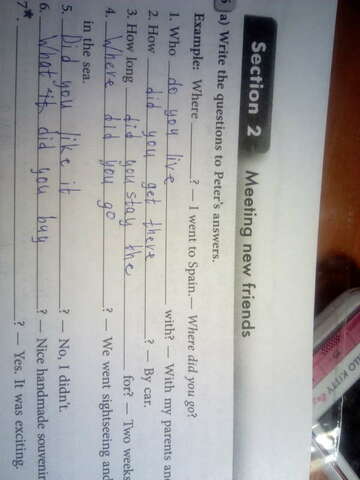 Section 2 Meeting new friends
a) Write the questions to Peter's answers.
Example: Where ? — I went to Spain.— Where did you go?
1. Who do you live with? — With my parents an
2. How did you get there ? — By car.
3. How long did you stay the for? — Two weeks
4. Where did you go ? — We went sightseeing and
in the sea.
5. Did you like it ? — No, I didn't.
6. What did you buy ? — Nice handmade souvenir
7* ? — Yes. It was exciting.